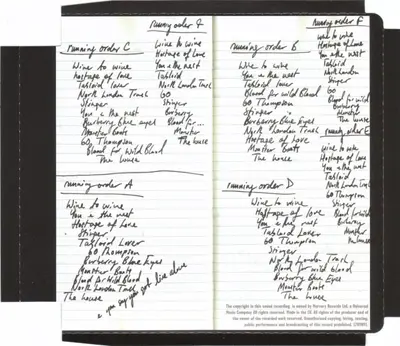 running order C
Wine to wine
hostage of love
Tabloid lover
North London Trash
Stinger
You & the nest
Burberry blue eyes
Monster Boots
GO, Thompson
Blood for Wild Blood
The house
running order
Wine to wine
Hostage of Love
You & the nest
Tabloid
North London Trash
GO
Stinger
Burberry
Blood for...
Monster
The house
running order A
Wine to wine
You & the nest
Hostage of love
Stinger
Tabloid Lover
GO Thompson
Burberry Blue Eyes
Monster Boots
Blood for Wild Blood
North London Trash
The house
running order B
Wine to wine
You & the nest
Tabloid lover
Blood for wild Blood
GO Thompson
Stinger
Burberry Blue Eyes
North London Trash
Hostage of Love
Monster Boots
The house
running order F
Wine to wine
Hostage of Love
You & the nest
Tabloid
North London
Stinger
GO
Blood for wild
Burberry
Monster
The house
running order E
Wine to wine
Hostage of Love
You & the nest
Tabloid
North London Trash
GO
Stinger
Blood for wild
Burberry
Monster
running order D
Wine to wine
Hostage of love
You & the nest
Tabloid Lover
GO Thompson
Stinger
North London Trash
Blood for wild Blood
Burberry Blue eyes
Monster Boots
The House
The copyright in this sound recording is owned by
Music Company All rights reserved. Made in the EU. All rights of the producer and of
the owner of the recorded work reserved. Unauthorised copying, hiring, lending,
public performance and broadcasting of this record prohibited.